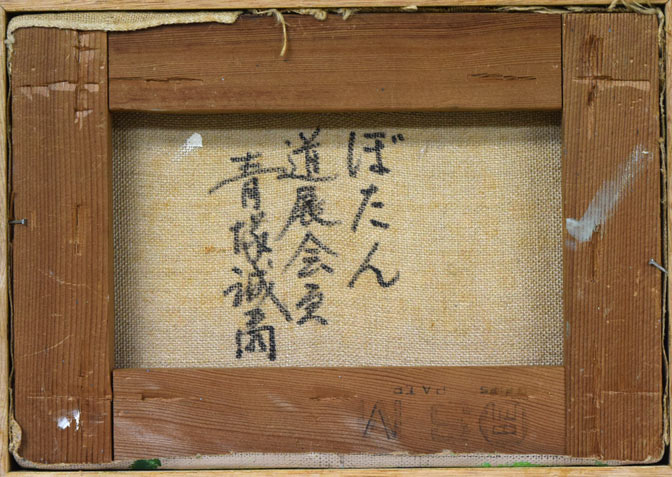 ぼたん
道展会員
青塚誠爾